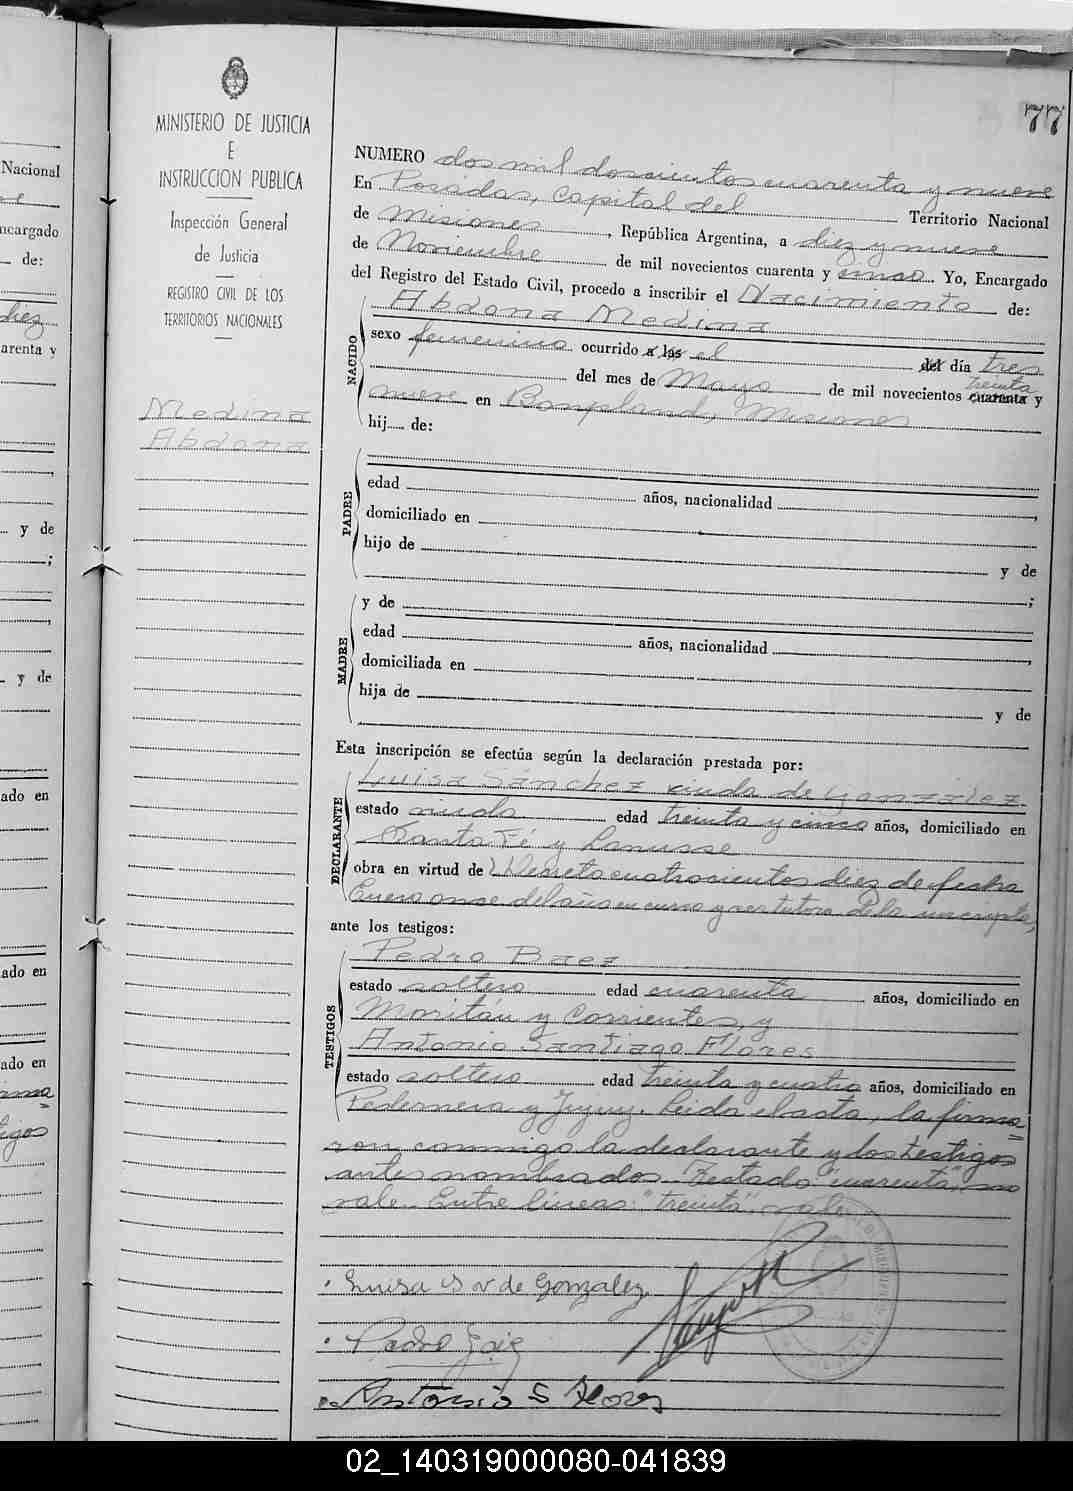 77
MINISTERIO DE JUSTICIA
E
INSTRUCCION PUBLICA
Inspección General
de Justicia
REGISTRO CIVIL DE LOS
TERRITORIOS NACIONALES
Medina
Abdona
NUMERO dos mil doscientos cuarenta y nueve
En Posadas, Capital del Territorio Nacional
de Misiones, República Argentina, a diez y nueve
de Noviembre de mil novecientos cuarenta y cinco. Yo, Encargado
del Registro del Estado Civil, procedo a inscribir el Nacimiento de:
NACIDO
Abdona Medina
sexo femenino ocurrido a las el del día tres
del mes de Mayo de mil novecientos cuarenta treinta y
nueve en Bonpland, Misiones
hij de:
PADRE
edad años, nacionalidad ,
domiciliado en
hijo de y de
;
MADRE
y de
edad años, nacionalidad ,
domiciliada en
hija de y de
Esta inscripción se efectúa según la declaración prestada por:
DECLARANTE
Luisa Sánchez viuda de González
estado viuda edad treinta y cinco años, domiciliado en
Santa Fé y Lanusse
obra en virtud de Decreto cuatrocientos diez de fecha
Enero once del año en curso y ser tutora de la inscripta,
ante los testigos:
TESTIGOS
Pedro Baez
estado soltero edad cuarenta años, domiciliado en
Moritán y Corrientes y
Antonio Santiago Flores
estado soltero edad treinta y cuatro años, domiciliado en
Pedernera y Jujuy. Leida el acta, la firma=
ron conmigo la declarante y los testigos
antes nombrados. Testado "cuarenta" no
vale. Entre líneas: "treinta" vale.
Luisa S v de Gonzalez
Pedro
Antonio S Flores
Nacional
ncargado
de:
diez
arenta y
y de
;
y de
ado en
ado en
ado en
tigos
02_140319000080-041839